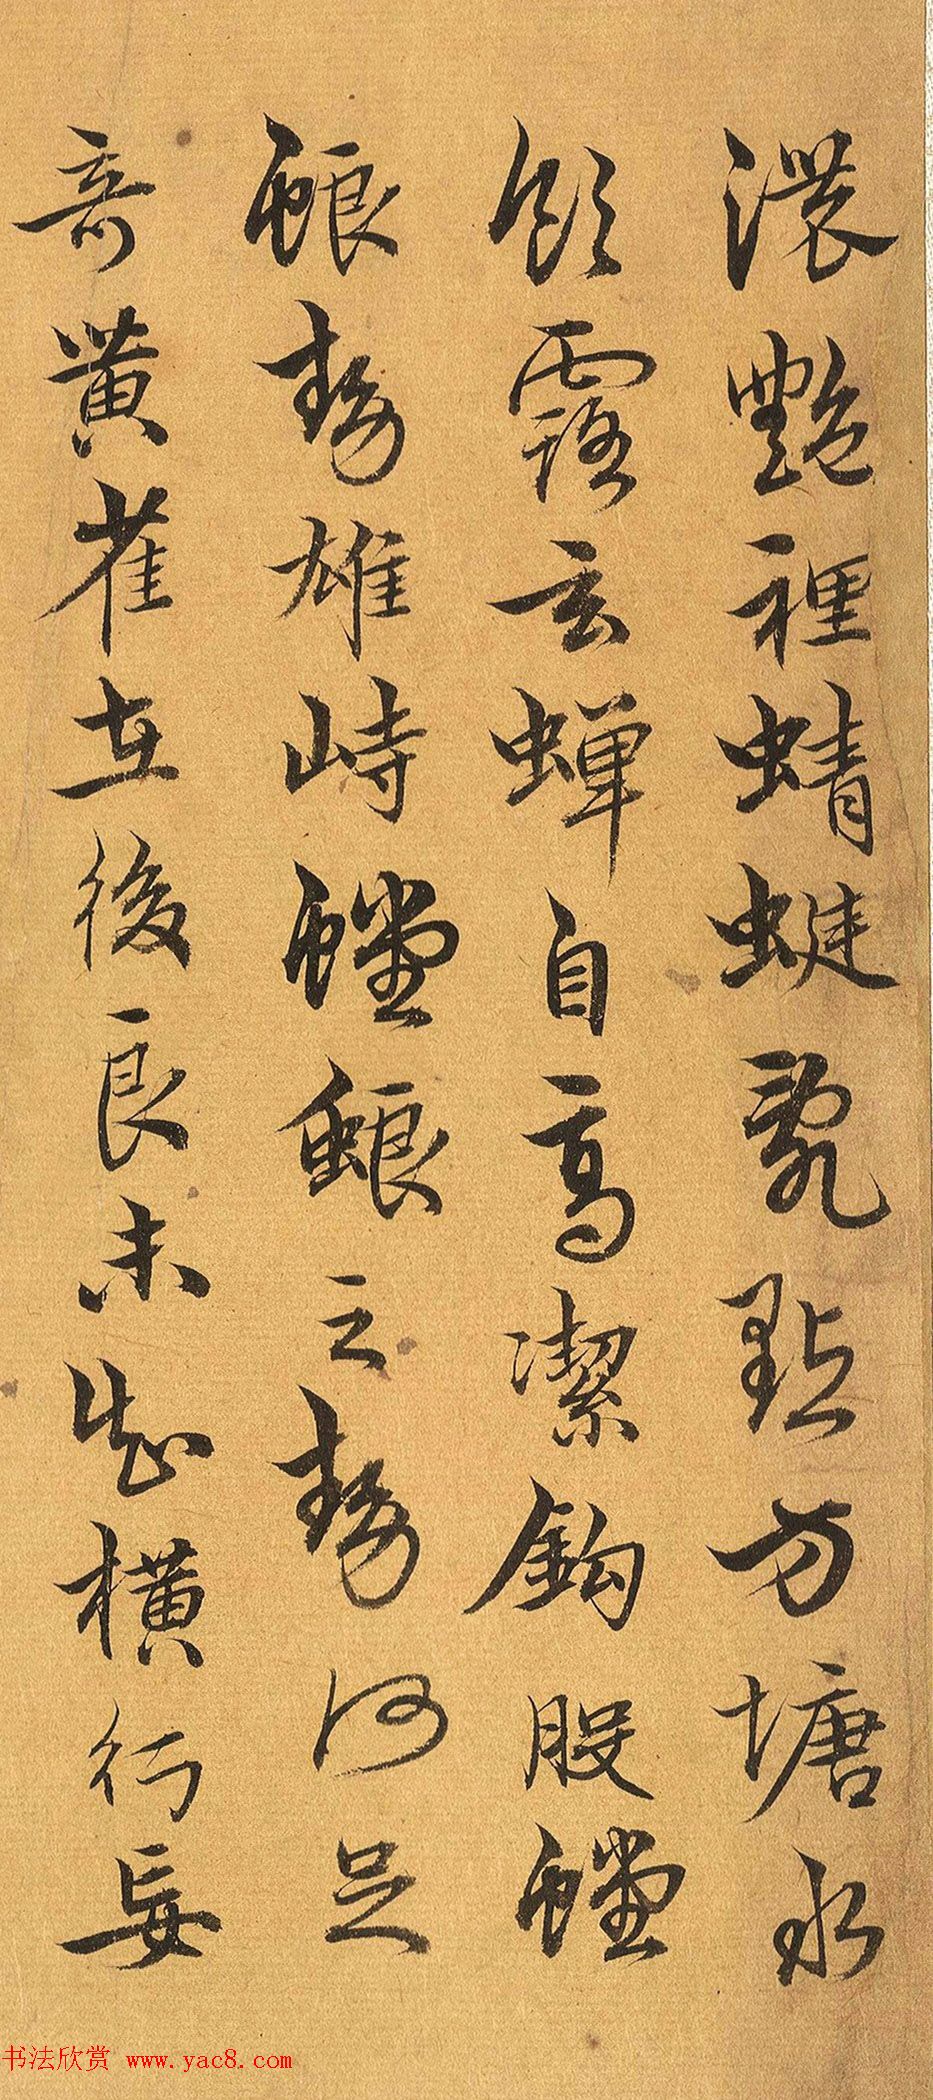 濃艶裡蜻蜓亂點方塘水
飲露玄蟬自高潔鉤股螳
蜋勢雄峙螳蜋之勢何足
奇黃雀在後良未知橫行妄
书法欣赏 www.yac8.com